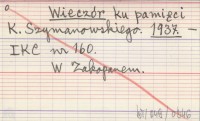 Wieczór ku pamięci
K. Szymanowskiego. 1937. –
IKC nr 160.
W Zakopanem.